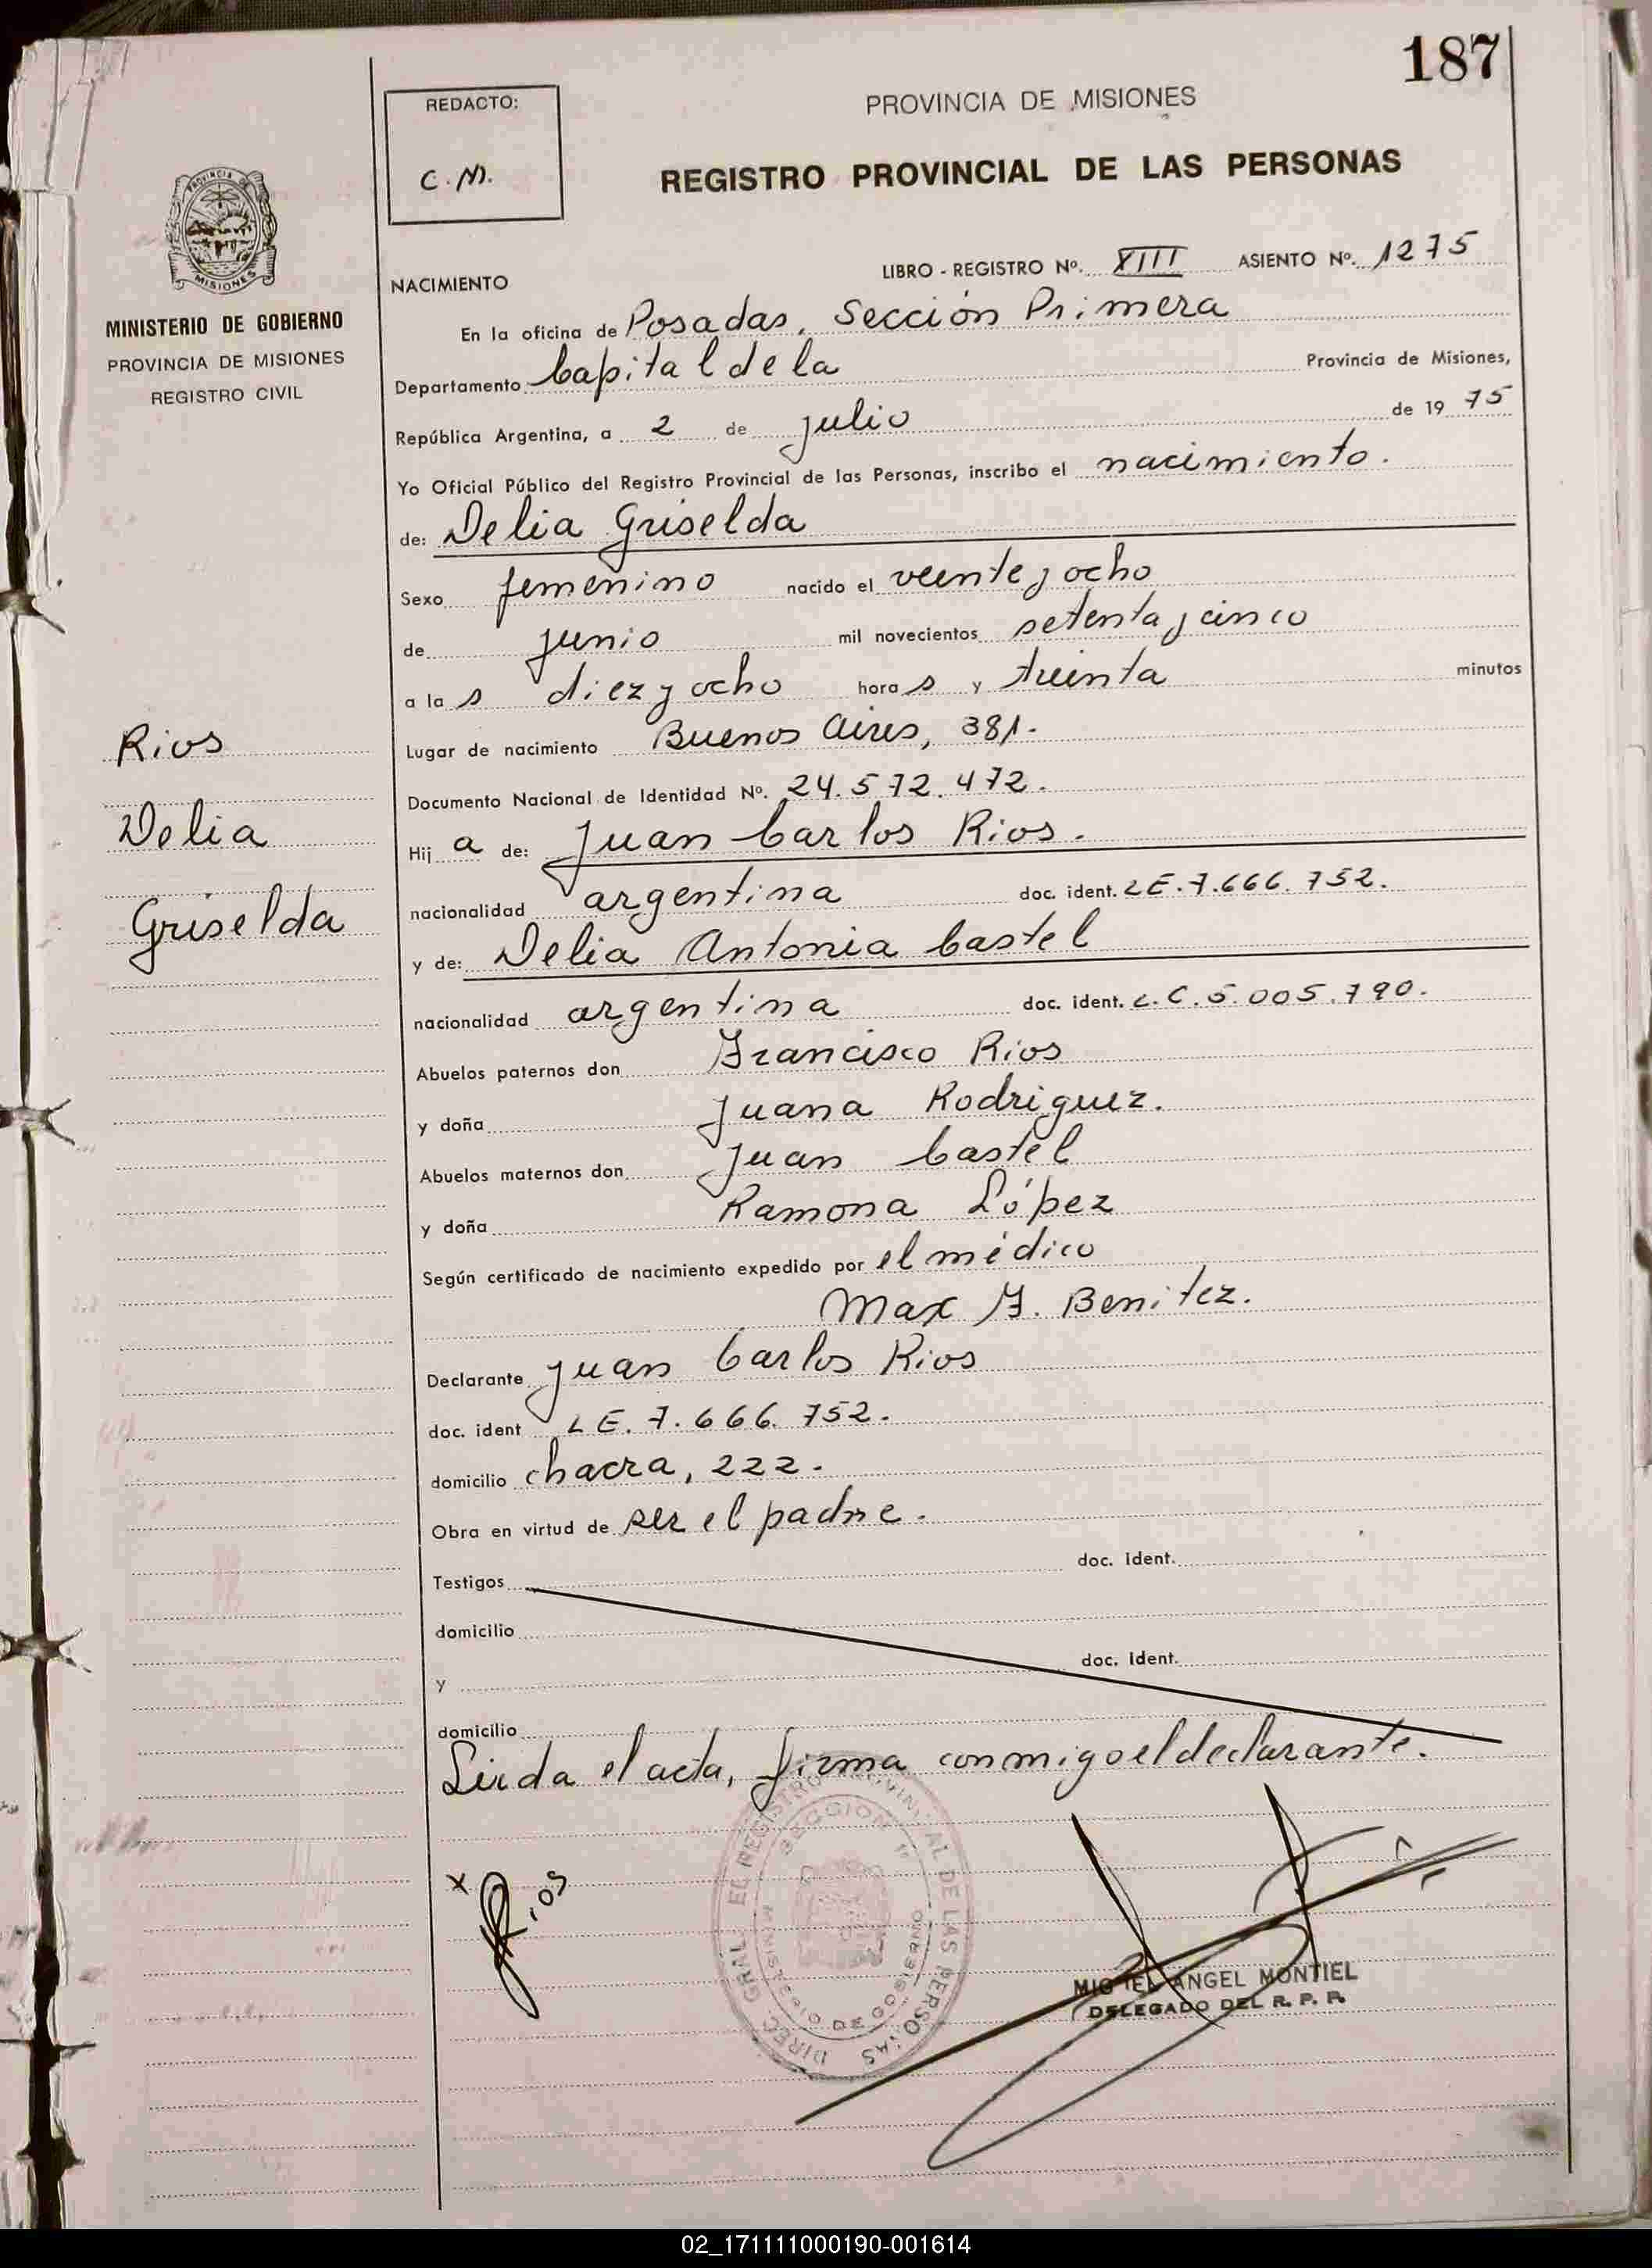 187
REDACTO:
C.M.
PROVINCIA DE MISIONES
REGISTRO PROVINCIAL DE LAS PERSONAS
PROVINCIA DE
MISIONES
MINISTERIO DE GOBIERNO
PROVINCIA DE MISIONES
REGISTRO CIVIL
LIBRO - REGISTRO Nº. XIII ASIENTO Nº. 1275
NACIMIENTO
En la oficina de Posadas, Sección Primera
Departamento Capital de la Provincia de Misiones,
República Argentina, a 2 de julio de 19 75
Yo Oficial Público del Registro Provincial de las Personas, inscribo el nacimiento.
de: Delia Griselda
Sexo femenino nacido el veinte y ocho
de junio mil novecientos setenta y cinco
a la s diez y ocho hora s y treinta minutos
Rios
Lugar de nacimiento Buenos Aires, 381.
Documento Nacional de Identidad Nº. 24.572.472.
Delia
Hij a de: Juan Carlos Rios.
nacionalidad argentina doc. ident. LE.7.666.752.
Griselda
y de: Delia Antonia Castel
nacionalidad argentina doc. ident. L.C.5.005.790.
Abuelos paternos don Francisco Rios
y doña Juana Rodriguez.
Abuelos maternos don Juan Castel
y doña Ramona López
Según certificado de nacimiento expedido por el médico
Max F. Benitez.
Declarante Juan Carlos Rios
doc. ident LE.7.666.752.
domicilio chacra, 222.
Obra en virtud de ser el padre.
Testigos doc. ident.
domicilio
y doc. ident.
domicilio
Leida el acta, firma conmigo el declarante.
x Rios
DIREC. GRAL. EL REGISTRO PROVINCIAL DE LAS PERSONAS
SECCION 1ª
MINISTERIO DE GOBIERNO
MIGUEL ANGEL MONTIEL
DELEGADO DEL R. P. P.
02_171111000190-001614